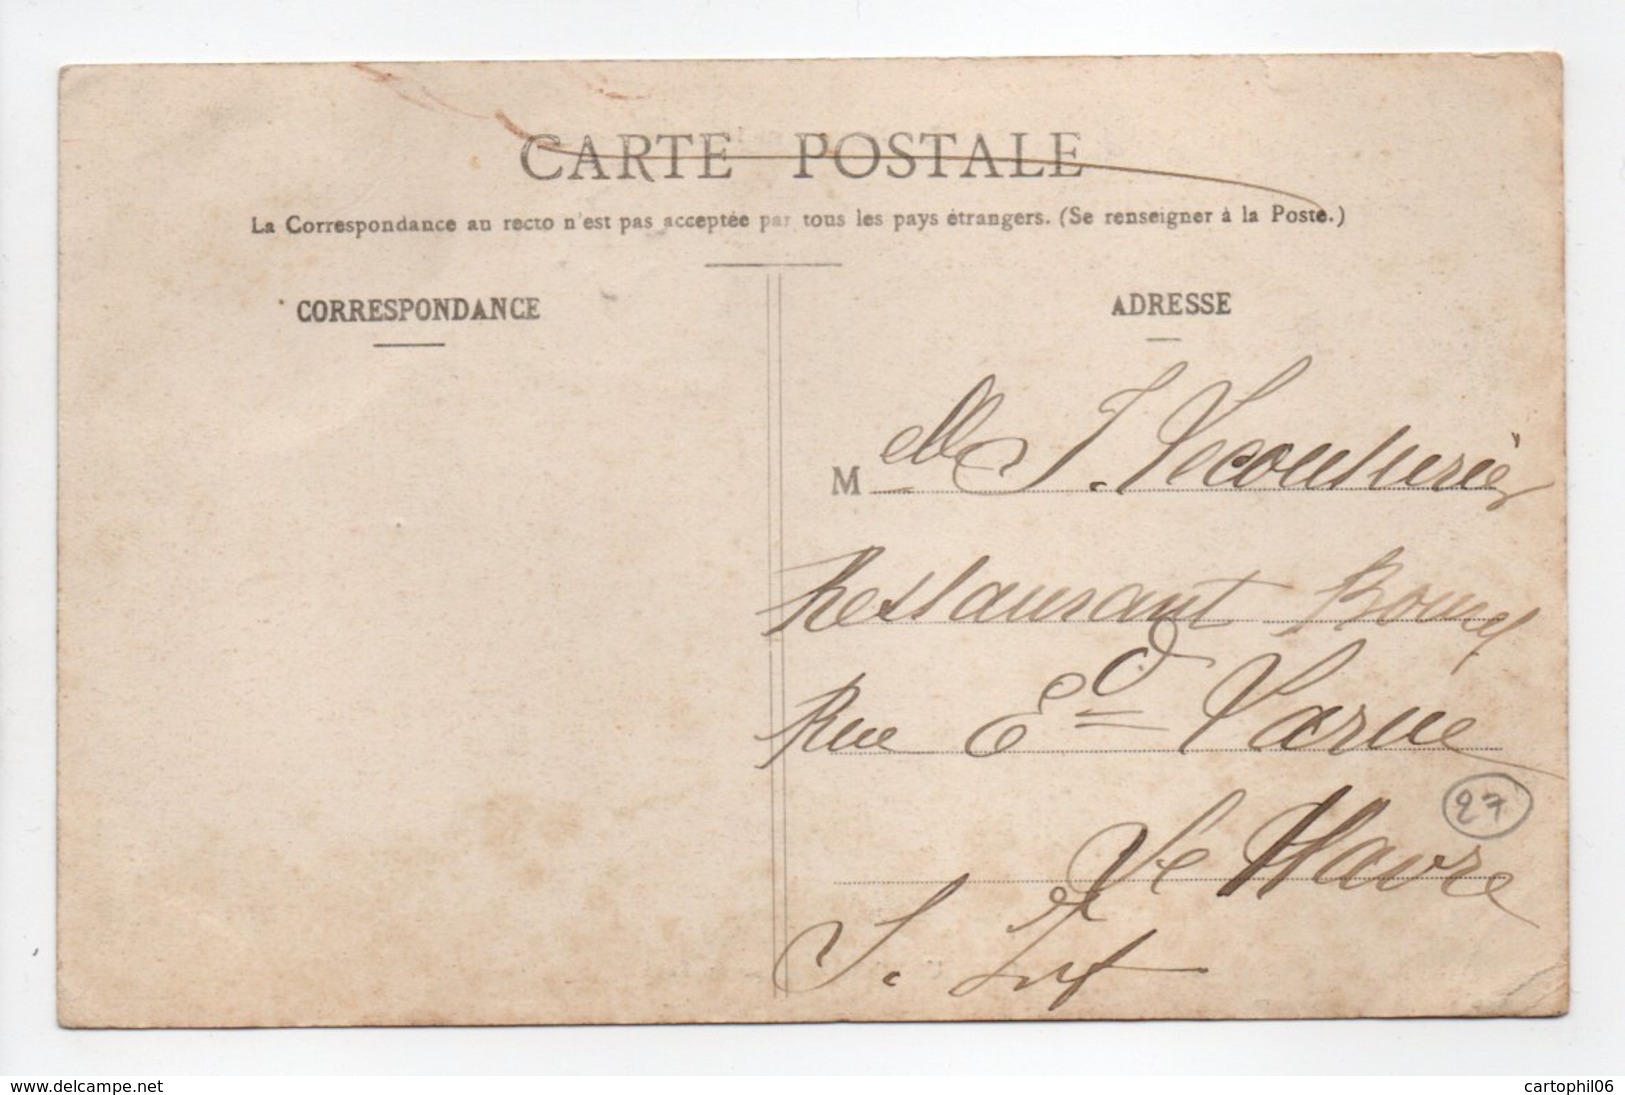 CARTE POSTALE
La Correspondance au recto n'est pas acceptée par tous les pays étrangers. (Se renseigner à la Poste.)
CORRESPONDANCE
ADRESSE
Melle J. Lecouturier
Restaurant
Rue Ed Larue
27
Le Havre
S. Infre
www.delcampe.net
cartophil06